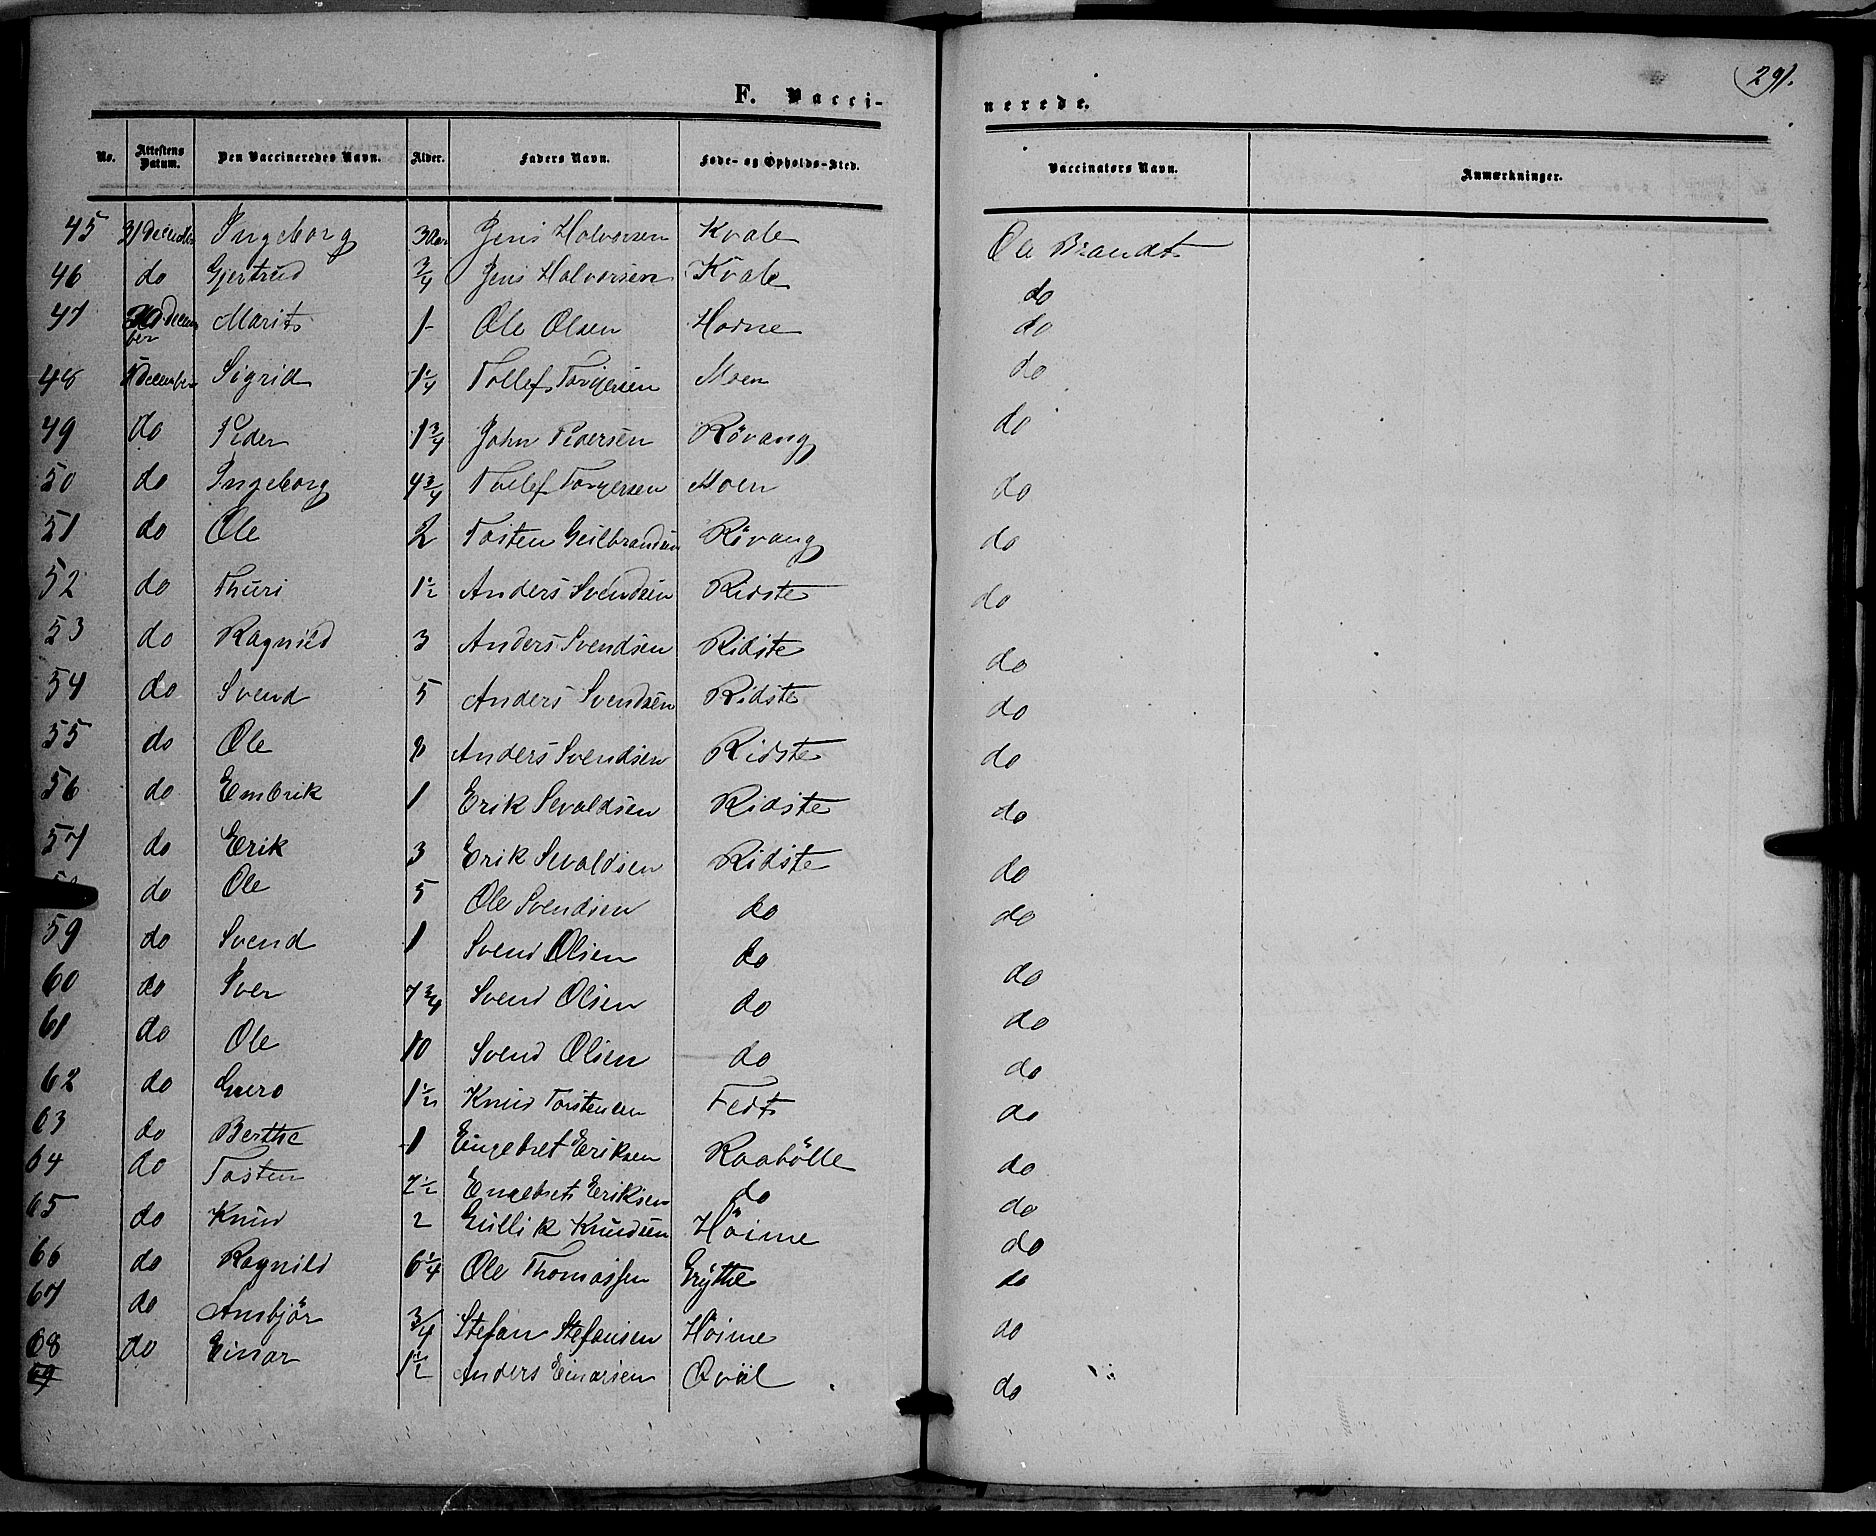 291.
F. Vacci-
nerede.
No. Attestens Datum. Den Vaccineredes Navn. Alder. Faders Navn. Føde- og Opholds-Sted. Vaccinators Navn. Anmærkninger.
45 31 December Ingeborg 3 Aar Jens Halvorsen Kvale Ole Brandt
46 do Gjertrud 3/4 Jens Halvorsen Kvale do
47 December Marit 1 Ole Olsen Horne do
48 December Sigrid 1 1/4 Tollef Torgersen Moen do
49 do Peder 1 3/4 John Pedersen Rövang do
50 do Ingeborg 4 3/4 Tollef Torgersen Moen do
51 do Ole 2 Tosten Gulbrandsen Rövang do
52 do Thuri 1 1/2 Anders Svendsen Ridste do
53 do Ragnild 3 Anders Svendsen Ridste do
54 do Svend 5 Anders Svendsen Ridste do
55 do Ole 8 Anders Svendsen Ridste do
56 do Embrik 1 Erik Sevaldsen Ridste do
57 do Erik 3 Erik Sevaldsen Ridste do
do Ole 5 Ole Svendsen do do
59 do Svend 1 Svend Olsen do do
60 do Iver 7 3/4 Svend Olsen do do
61 do Ole 10 Svend Olsen do do
62 do Guro 1 1/2 Knud Torstensen Fedt do
63 do Berthe 1 Eingebret Eriksen Raabölle do
64 do Tosten 2 1/2 Engebret Eriksen do do
65 do Knud 2 Gullik Knudsen Höime do
66 do Ragnild 6 1/4 Ole Thomassen Grÿthe do
67 do Ansbjör 3/4 Stefan Stefansen Höime do
68 do Einar 1 1/2 Anders Einarsen Qvíil do
69